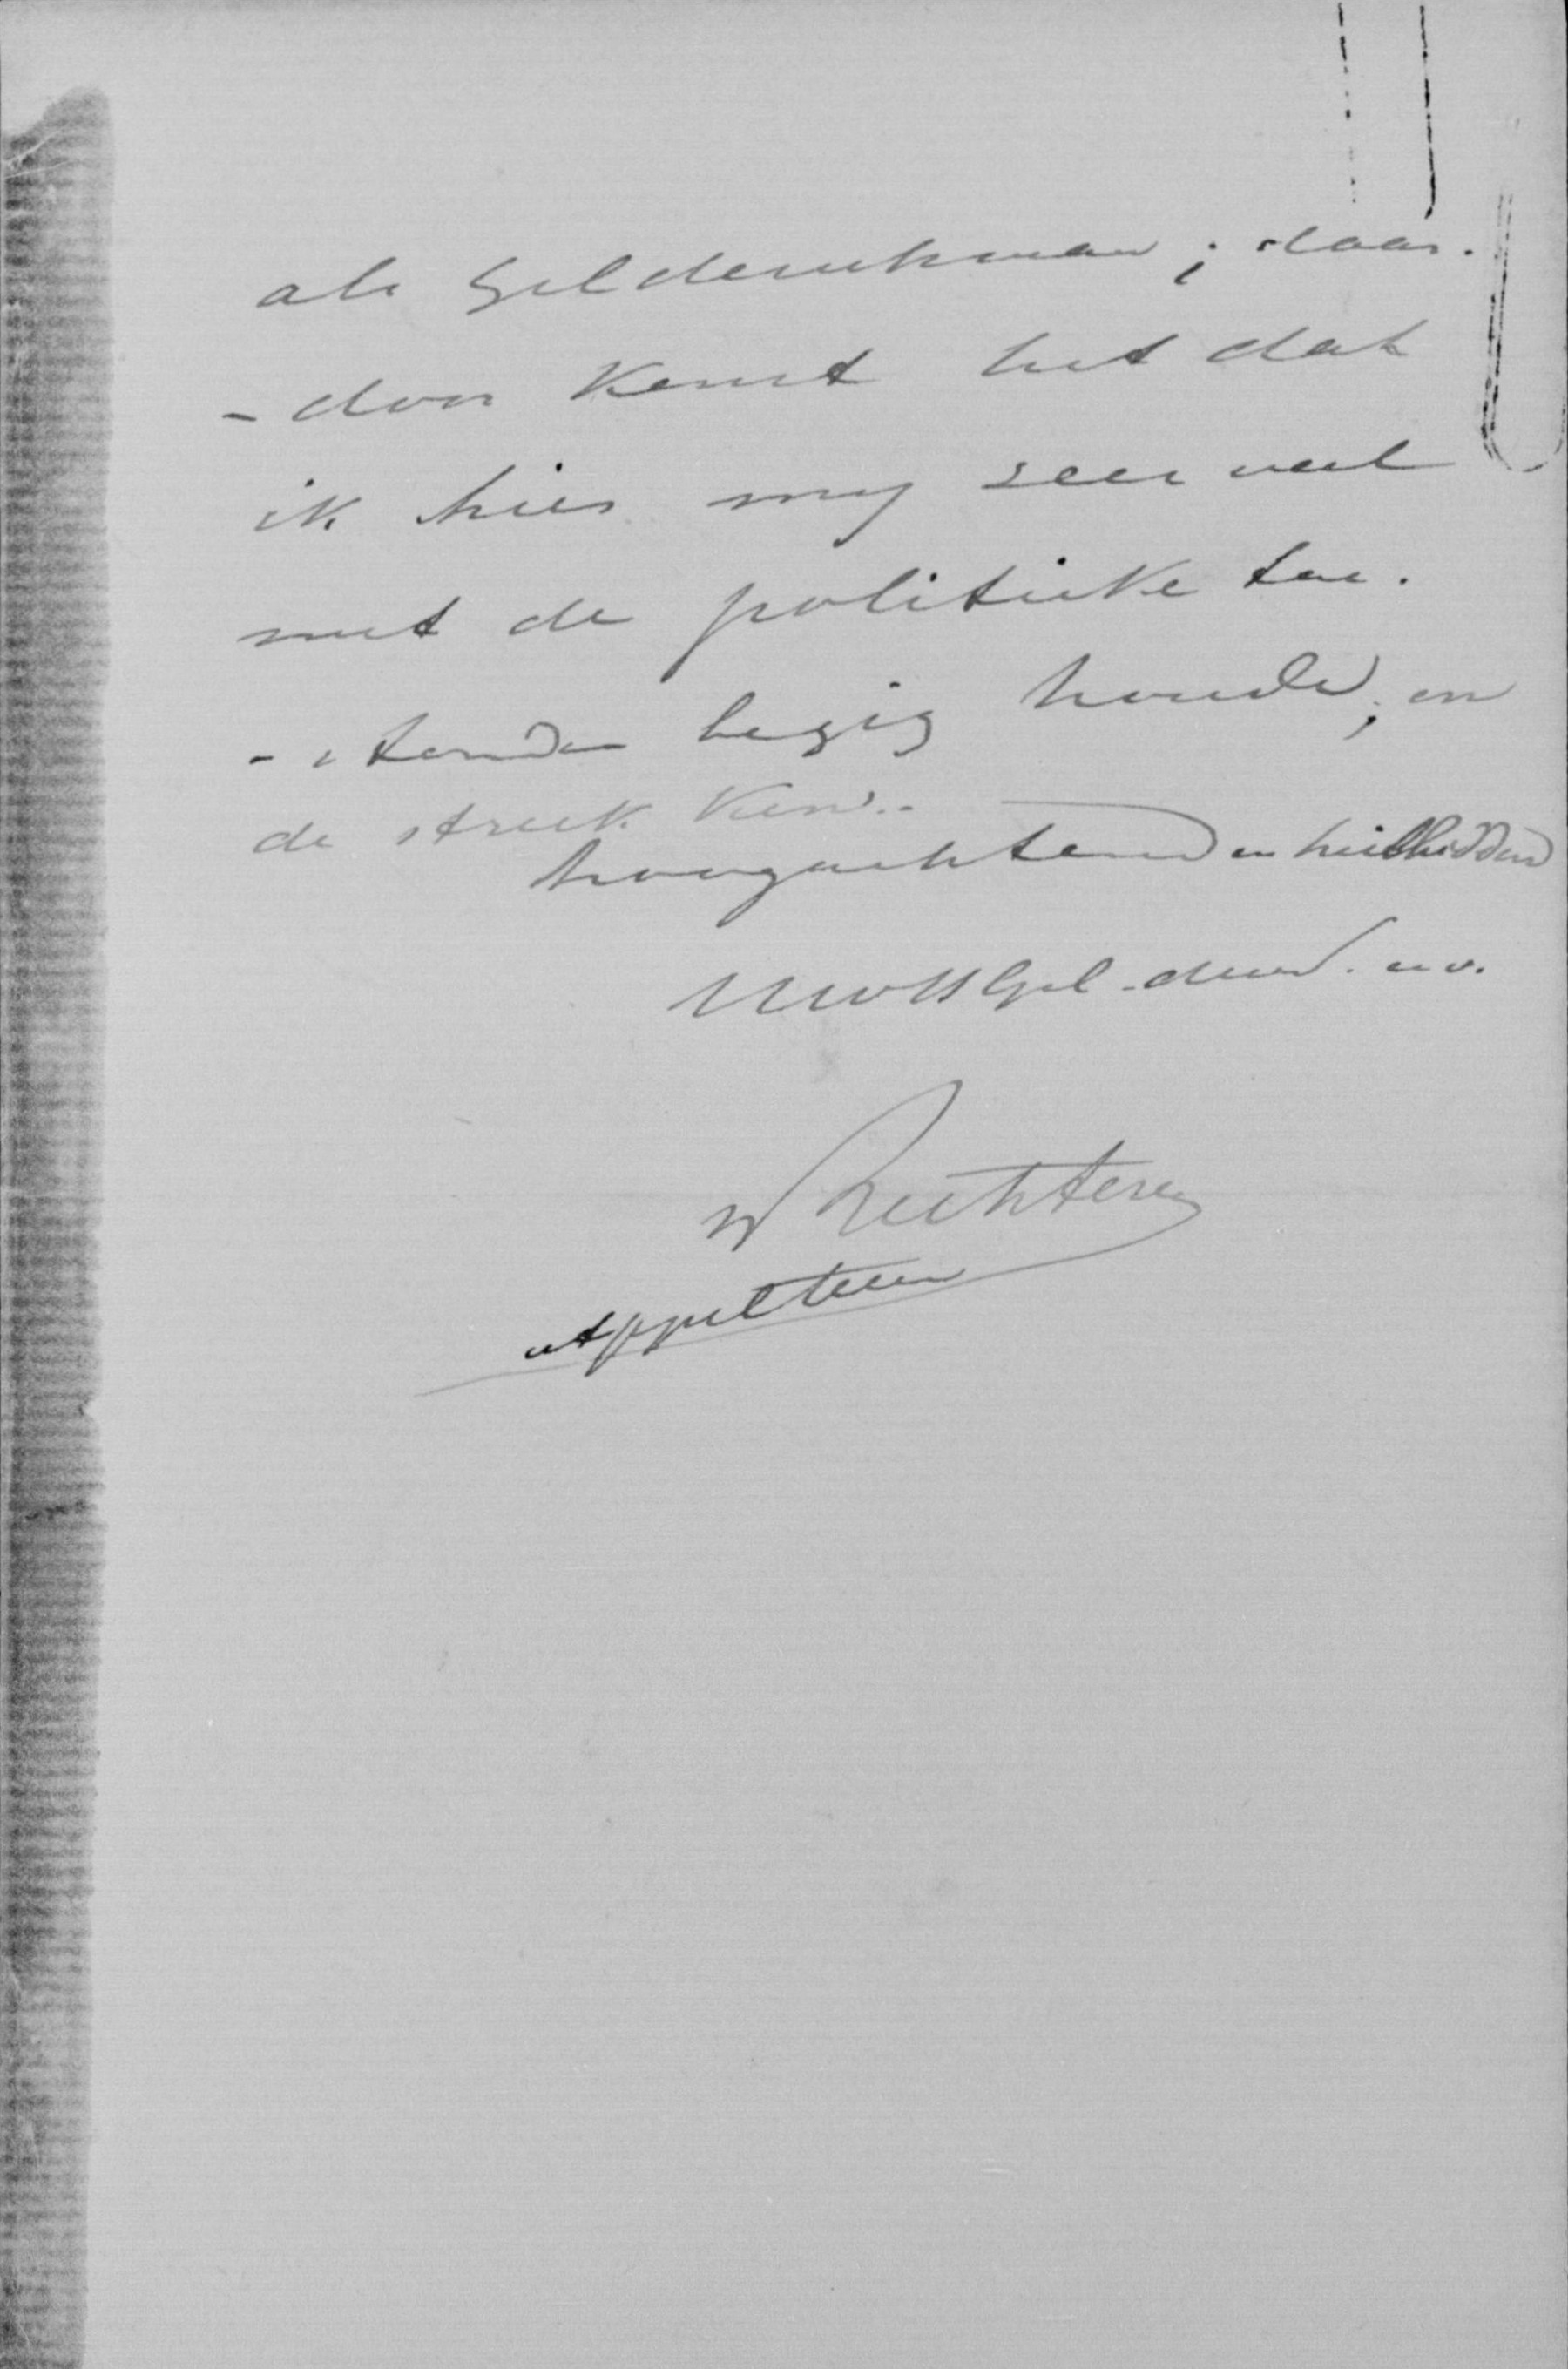 als Gelderschman; daar-
-door komt het dat
ik hier my zeer veel
met de politieke toe-
-standen bezig houde, en
de streek ken.
hoogachtend en heilbiddend
UwHGel. dien. v.
v Rechteren
Appeltern